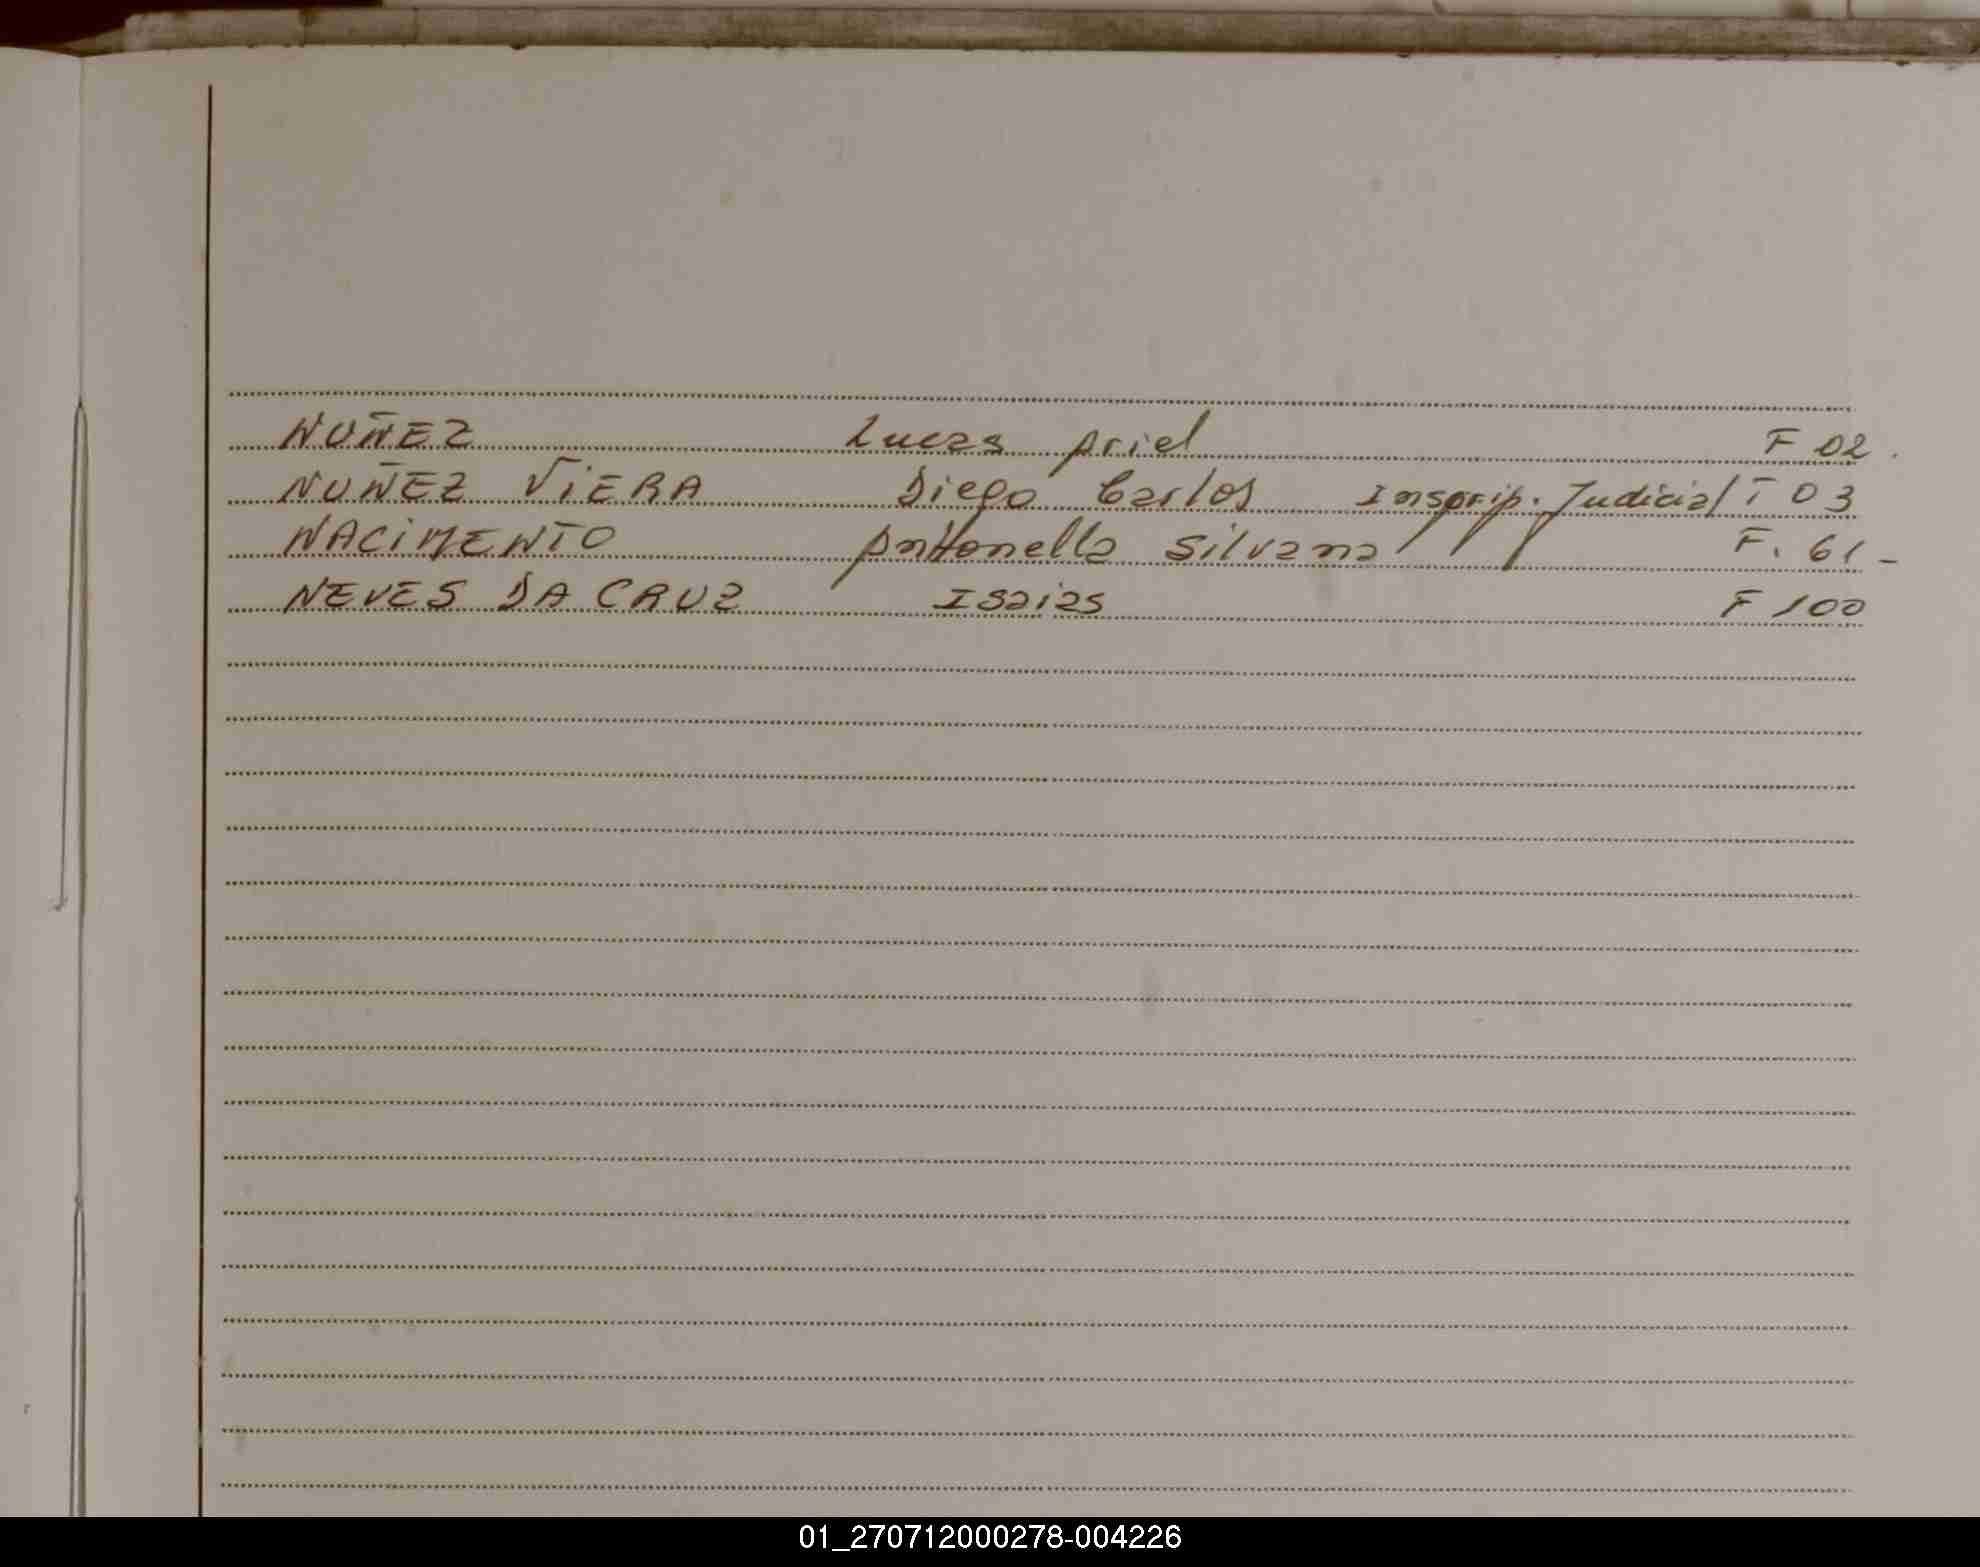 NUÑEZ Lucas Ariel F 02.
NUÑEZ VIERA Diego Carlos Inscrip. Judicial F 03
NACIMENTO Antonella Silvana F. 61-
NEVES DA CRUZ Isaias F 100
01_270712000278-004226